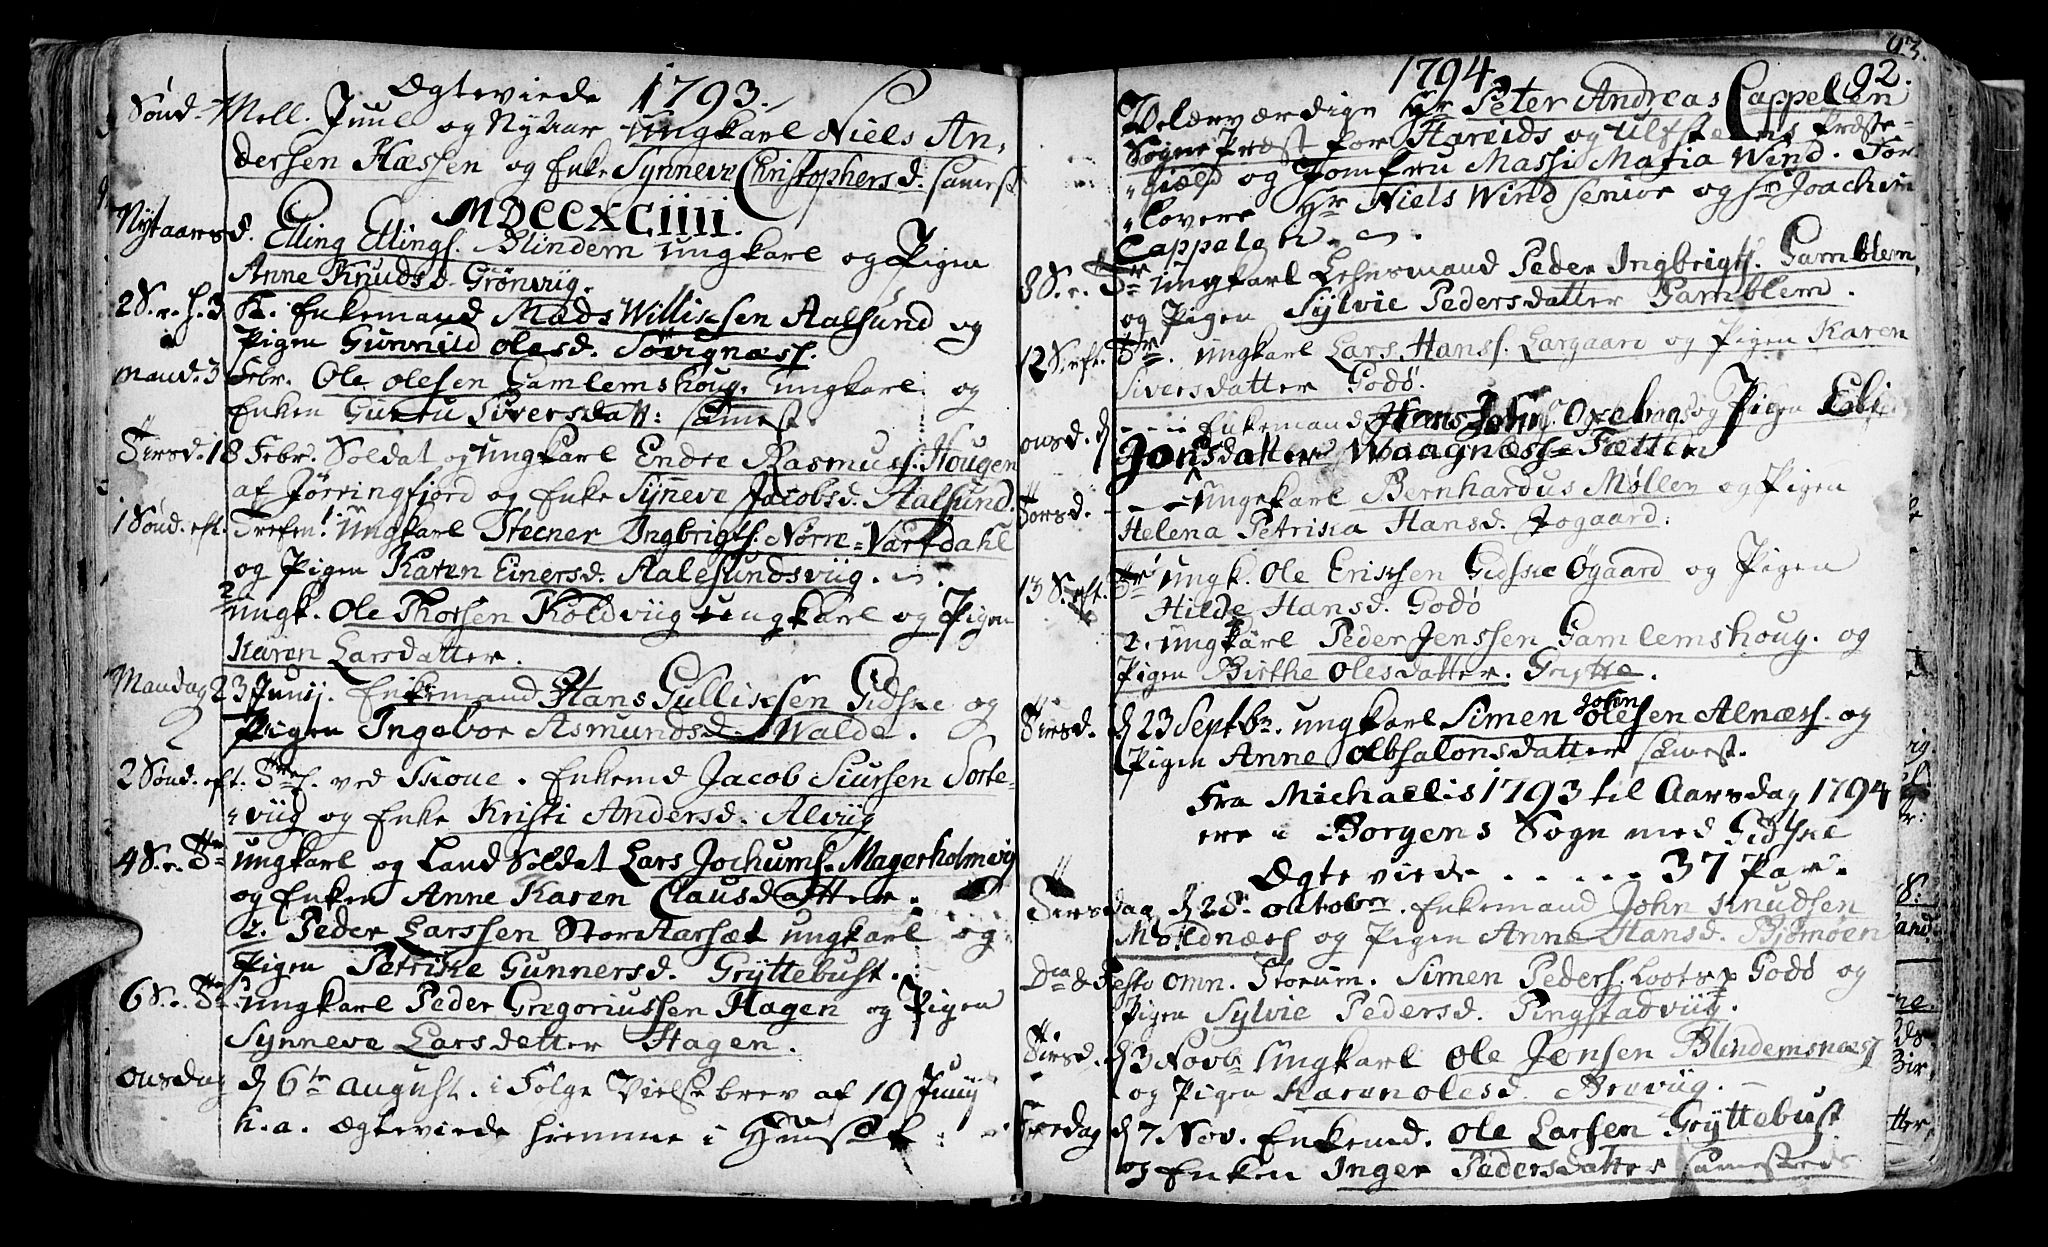 Ægteviede 1793.
Sönd. Mell. Juul og NyAar Ungkarl Niels An,
dersen Hæssen og Enke Synneve Christophersd. samest
MDCCXCIIII.
Nytaarsd. Elling Ellings. Blindem Ungkarl og Pigen
Anne Knudsd. Grönviig.
2 S. e. H. 3 K. Enkemand Mads Williksen Aalsund og
Pigen Gunnild Olesd. Sövignæss.
Mand. 3 Febr. Ole Olesen Gamlemshoug. Ungkarl og
Enken Guru Siversdatt: samest.
Tirsd. 18 Febr. Soldat og Ungkarl Endre Rasmuss. Hougen
af Jörringfjord og Enke Synneve Jacobsd. Aalsund.
1 Sönd. eft. Trefen. 1. Ungkarl Stecner Ingbrigts. Nörre-Vartdahl
og Pigen Karen Einersd. Aalesundsviig.
2 Ungk. Ole Thorsen Koldviig Ungkarl og Pigen
Karen Larsdatter.
Mandag 23 Junij. Enkemand Hans Gulliksen Gidske og
Pigen Ingebor Asmundsd. Walde.
2 Sönd. eft. Tref. ved Skoue. Enkemd Jacob Siursen Sorte-
viig og Enke Kristi Andersd. Alviig
4 S. e. Tr. Ungkarl og Land Soldat Lars Jochums. Magerholmvig
og Enken Anne Karen Clausdatter.
2. Peder Larssen StorAarsæt Ungkarl og
Pigen Petrike Gunnersd. Gryttebust.
6 S. e. Tr. Ungkarl Peder Gregoriussen Hagen og Pigen
Synneve Larsdatter Hagen.
Onsdag d 6te August. i Fölge Vielse brev af 19 Junij
h. a. Ægteviede hiemme i Huset
93.
1794
92.
Velærværdige Hr Peter Andreas Cappelen
Sogne Præst for Hareids og Ulfsteens Præste-
giæld og Jomfru Massi Maria Wind. For-
lovere Hr Niels Wind senior og Hr Joachim
Cappelen.
8 S. e. Tr Ungkarl Lehnsmand Peder Ingbrigts. Gamblem
og Pigen Sylvie Pedersdatter Gamblem.
12 S. eft. Tr. Ungkarl Lars Hanss. Largaard og Pigen Karen
Siversdatter Godö.
Onsd. d ---- Enkemand Hans Johns. Oxelnas og Pigen Eli
Jonsdatter Waagnæss-Tætten
Torsd. --- Ungekarl Bernhardus Møller og Pigen
Helena Petrika Hansd. Jogaard.
13 S. eft. Tr Ungk. Ole Eriksen Gidske Øgaard og Pigen
Hilde Hansd. Godö
2. Ungkarl Peder Jenssen Gamlemshoug. og
Pigen Birthe Olesdatter. Grytte.
Tirsd. d 23 Septbr. Ungkarl Simen Olesen Alnæss. og
Pigen Anne Absalonsdatter samest.
Fra Michaelis 1793 til Aarsdag 1794
ere i Borgens Sogn med Gidske
Ægteviede . . . . . 37 Par.
Tirsdag d 2d. October. Enkemand John Knudsen
Moldnæss og Pigen Anne Hansd. Björnöen
Dca & Festo omn. Storum. Simen Peders. Loots Godö og
Pigen Sylvie Pedersd. Pingstadviig.
Tirsd. d 3 Novbr Ungkarl Ole Jonsen Blindemsnæss
og Pigen Karen Olesd. Breviig.
Fredag d 7 Nov. Enkemd. Ole Larsen Gryttebust
og Enken Inger Pedersdatter samesteds